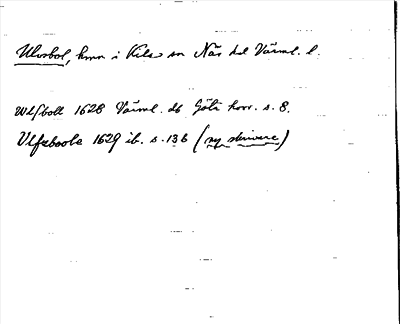 Ulvsbol, hmn i Kils sn Näs hd Värml. l.
Wlfbolt 1628 Värml. db Göta hovr. s. 8.
Vlfzboole 1629 ib. s. 136 (ny skrivare)